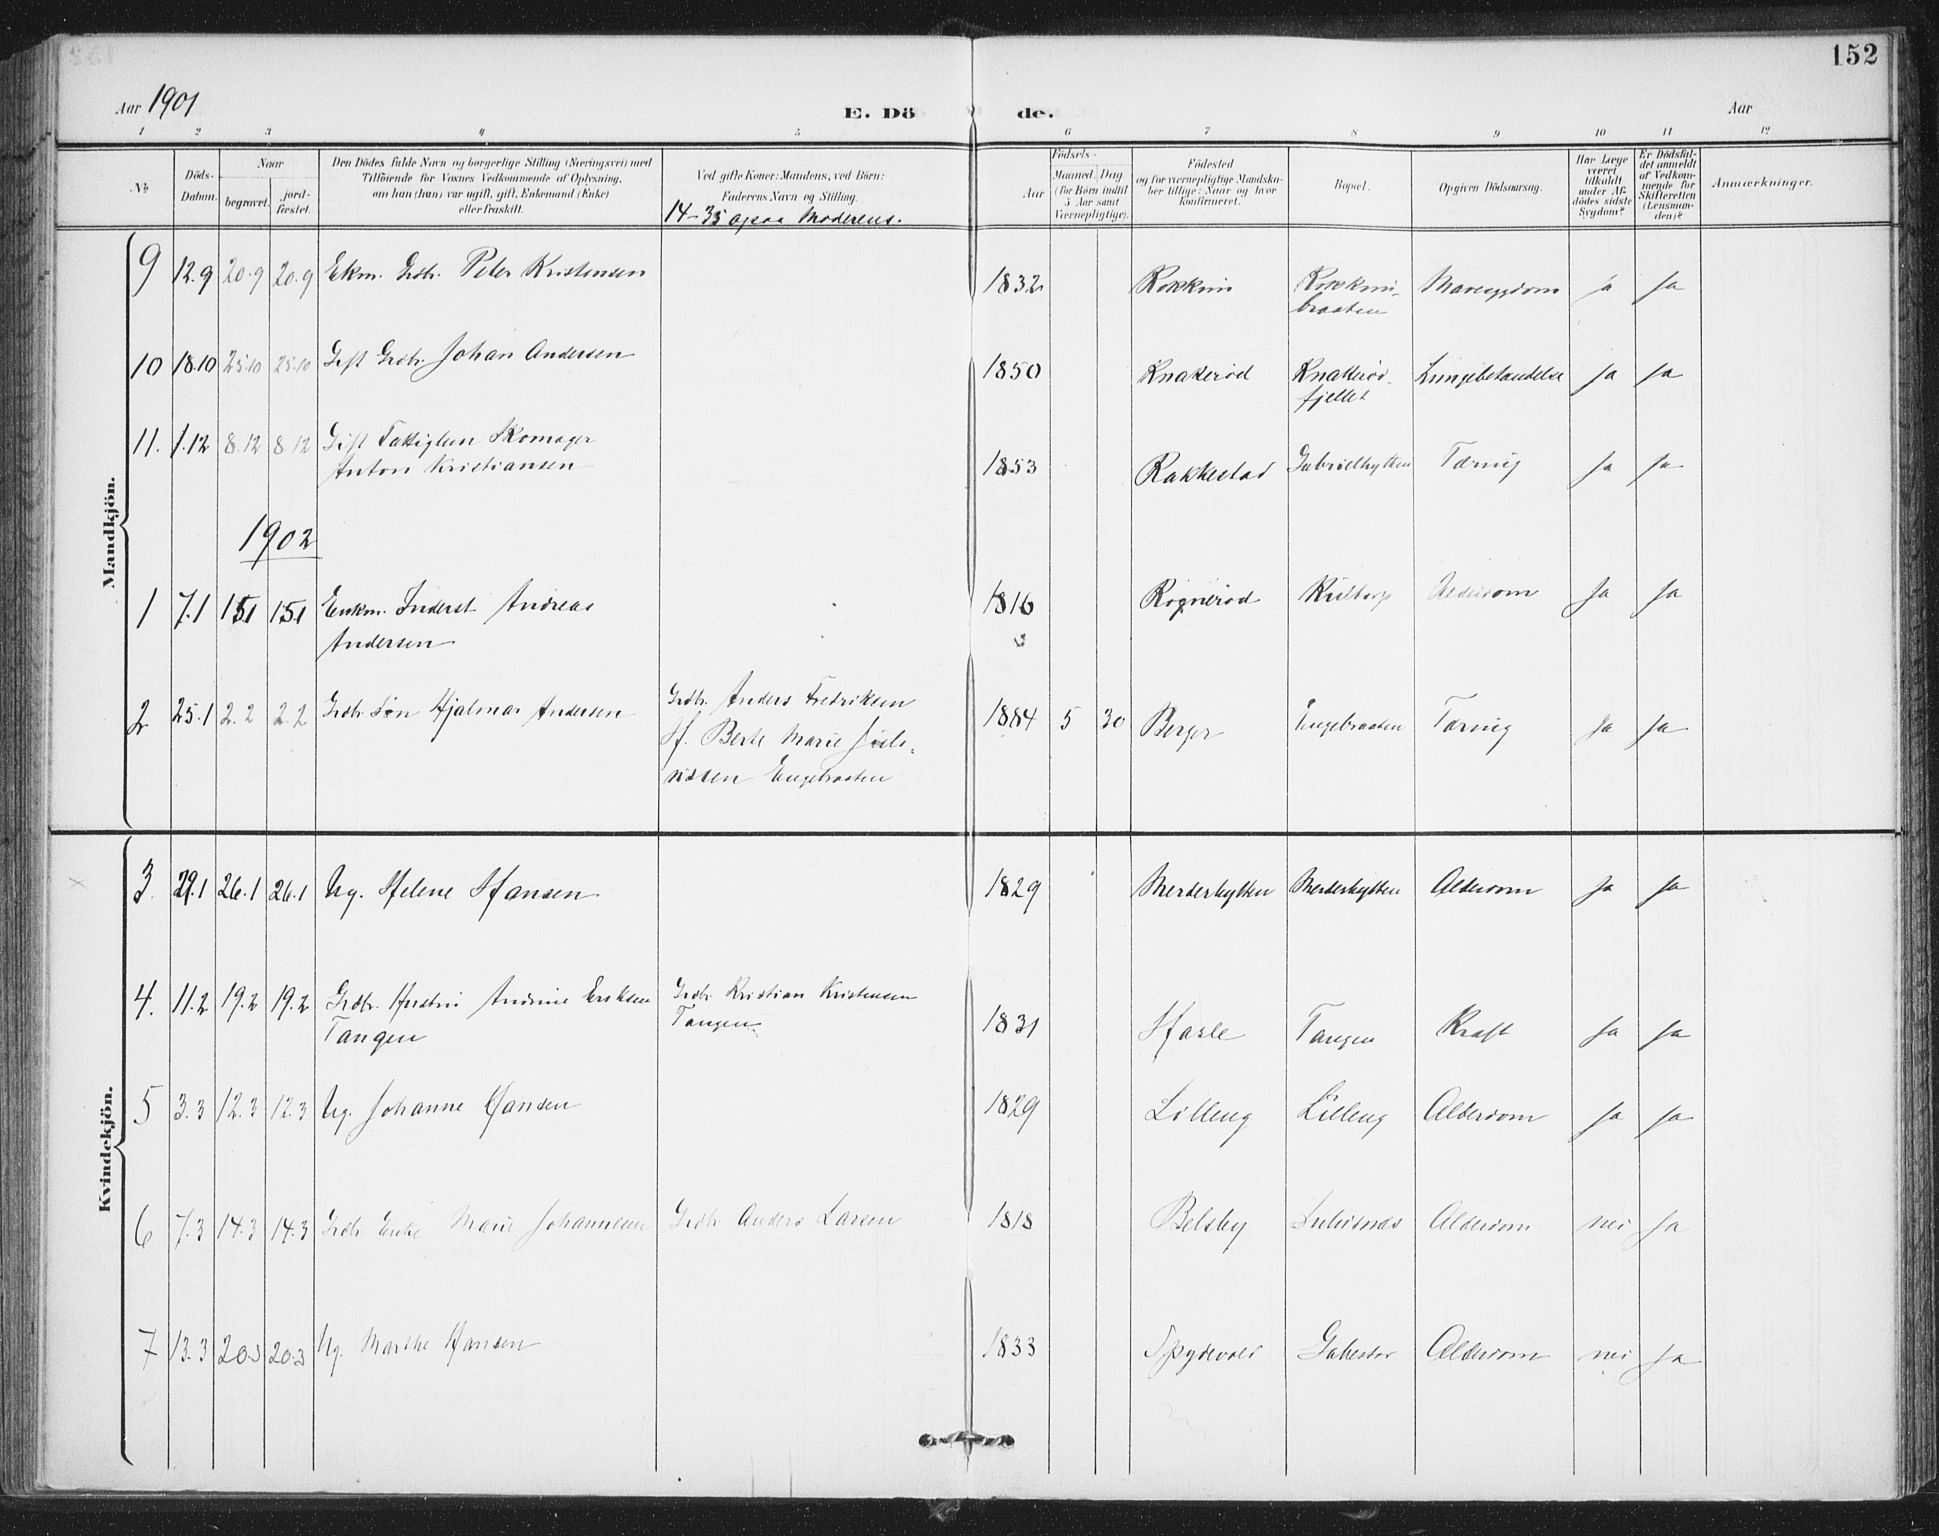 152
Aar 1901
E. Dö de.
Aar
1 2 3 4 5 6 7 8 9 10 11 12
No.
Döds-Datum.
Naar
begravet.
jord-fæstet.
Den Dödes fulde Navn og borgerlige Stilling (Næringsvei) med
Tilföiende for Voxnes Vedkommende af Oplysning,
om han (hun) var ugift, gift, Enkemand (Enke)
eller fraskilt.
Ved gifte Koner: Mandens, ved Börn:
Faderens Navn og Stilling.
14-35 ogsaa Moderens.
Födsels-
Aar
Maaned. Dag
(for Börn indtil
5 Aar samt
Værnepligtige).
Födested
og for værnepligtige Mandsku-
ber tillige: Naar og hvor
konfirmeret.
Bopæl.
Opgiven Dödsaarsag.
Har Læge
været
tilkaldt
under Af-
dödes sidste
Sygdom?
Er Dödsfal-
det anmeldt
af Vedkom-
mende for
Skifteretten
(Lensman-
den)?
Anmærkninger.
Mandkjön.
9 12.9 20.9 20.9 Ekm. Grdbr. Peter Kristensen 1832 Kokkim Kokkim-braaten Mavesygdom ja ja
10 18.10 25.10 25.10 Gift Grdbr. Johan Andersen 1850 Knakerød Knakerød-fjellet Lungebetændelse ja ja
11. 1.12 8.12 8.12 Gift Fattiglem Skomager
Anton Kristiansen 1853 Rakkestad Gabrielhytten Tæring ja ja
1902
1 7.1 15.1 15.1 Enkm. Inderst Andreas
Andersen 1816 Rognerød Alderdom Ja Ja
2 25.1 2.2 2.2 Grdbr. Søn Hjalmar Andersen Grdbr. Anders Fredriksen
Hf. Berte Marie
Engebraaten 1884 5 30 Berger Engebraaten Tæring Ja Ja
Kvindekjön.
3 29.1 26.1 26.1 Ug. Helene Hansen 1829 Merderhytten Merderhytten Alderdom Ja Ja
4. 11.2 19.2 19.2 Grdbr. Hustru Andrine Eriksen
Tangen Grdbr. Kristian Kristensen
Tangen 1831 Hasle Tangen Kræft Ja Ja
5 3.3 12.3 12.3 Ug. Johanne Hansen 1829 Lilleng Lilleng Alderdom Ja Ja
6 7.3 14.3 14.3 Grdbr. Enke Marie Johannesen Grdbr. Anders Larsen 1818 Belsby Alderdom nei Ja
7 13.3 20.3 20.3 Ug. Marthe Hansen 1833 Spydevold Gabestad Alderdom nei Ja